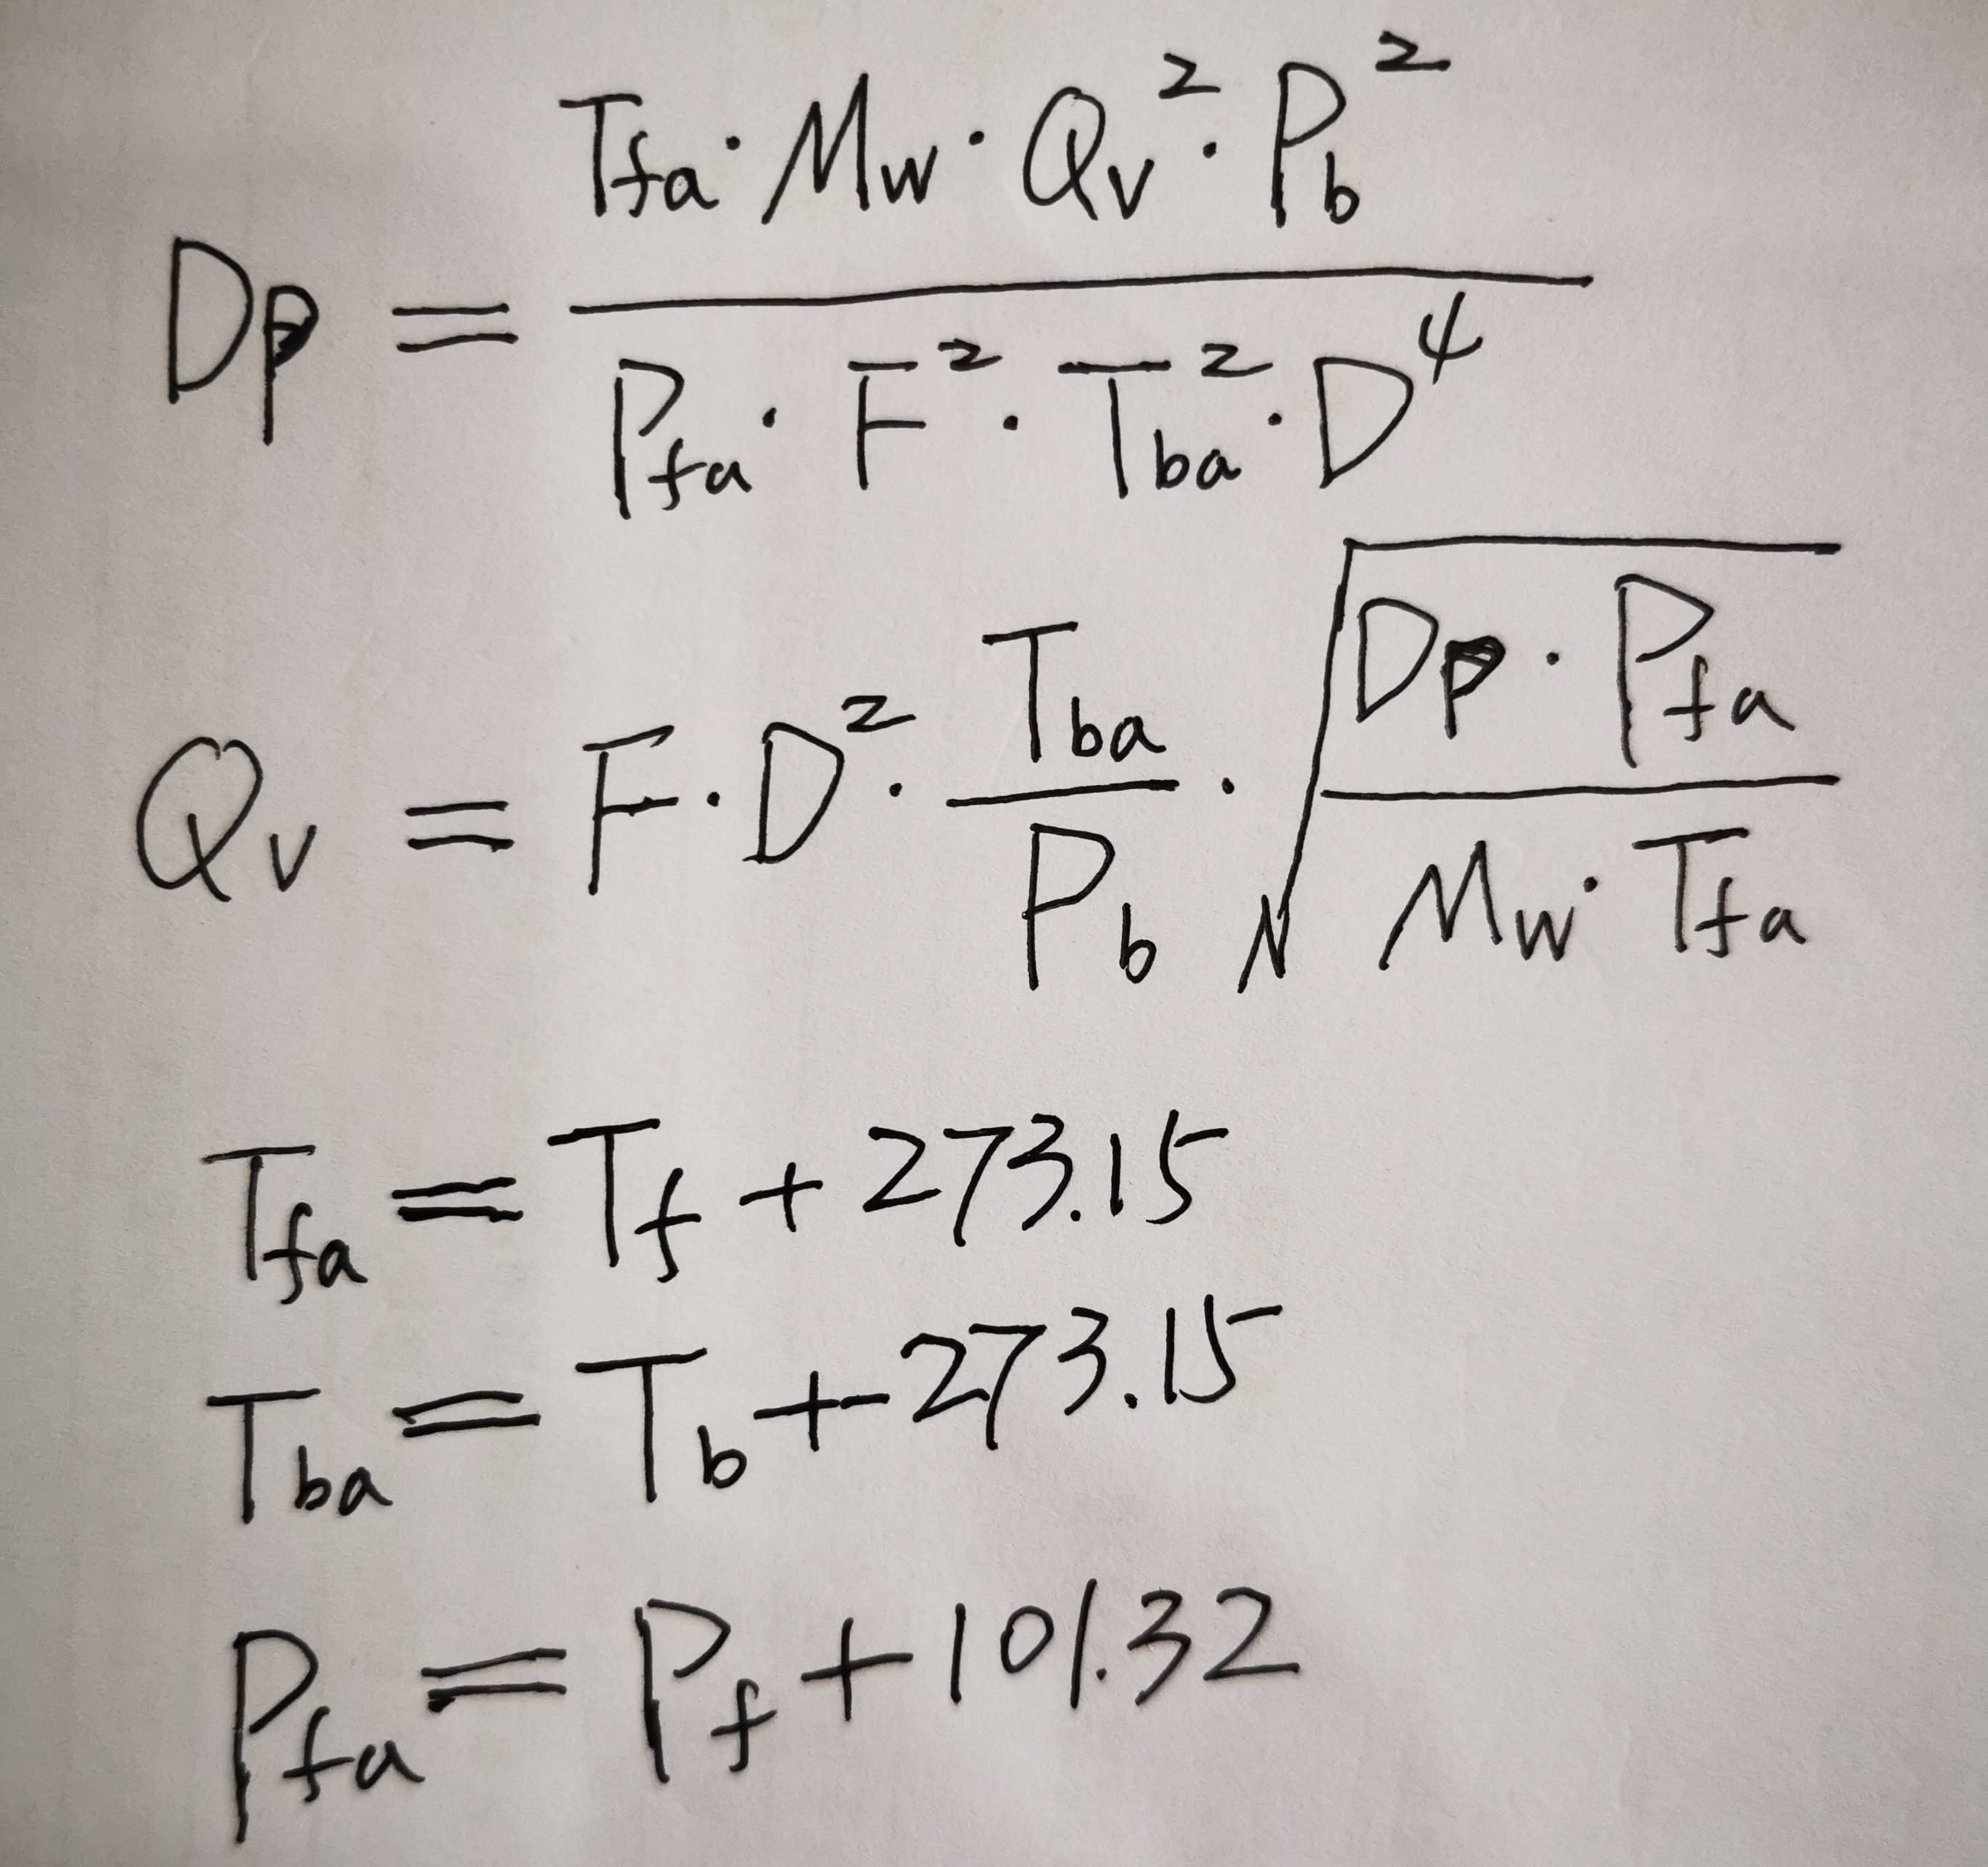 Dp = (Tfa · Mw · Qv² · Pb²) / (Pfa · F² · Tba² · D⁴)
Qv = F · D² · (Tba / Pb) · √((Dp · Pfa) / (Mw · Tfa))
Tfa = Tf + 273.15
Tba = Tb + 273.15
Pfa = Pf + 101.32